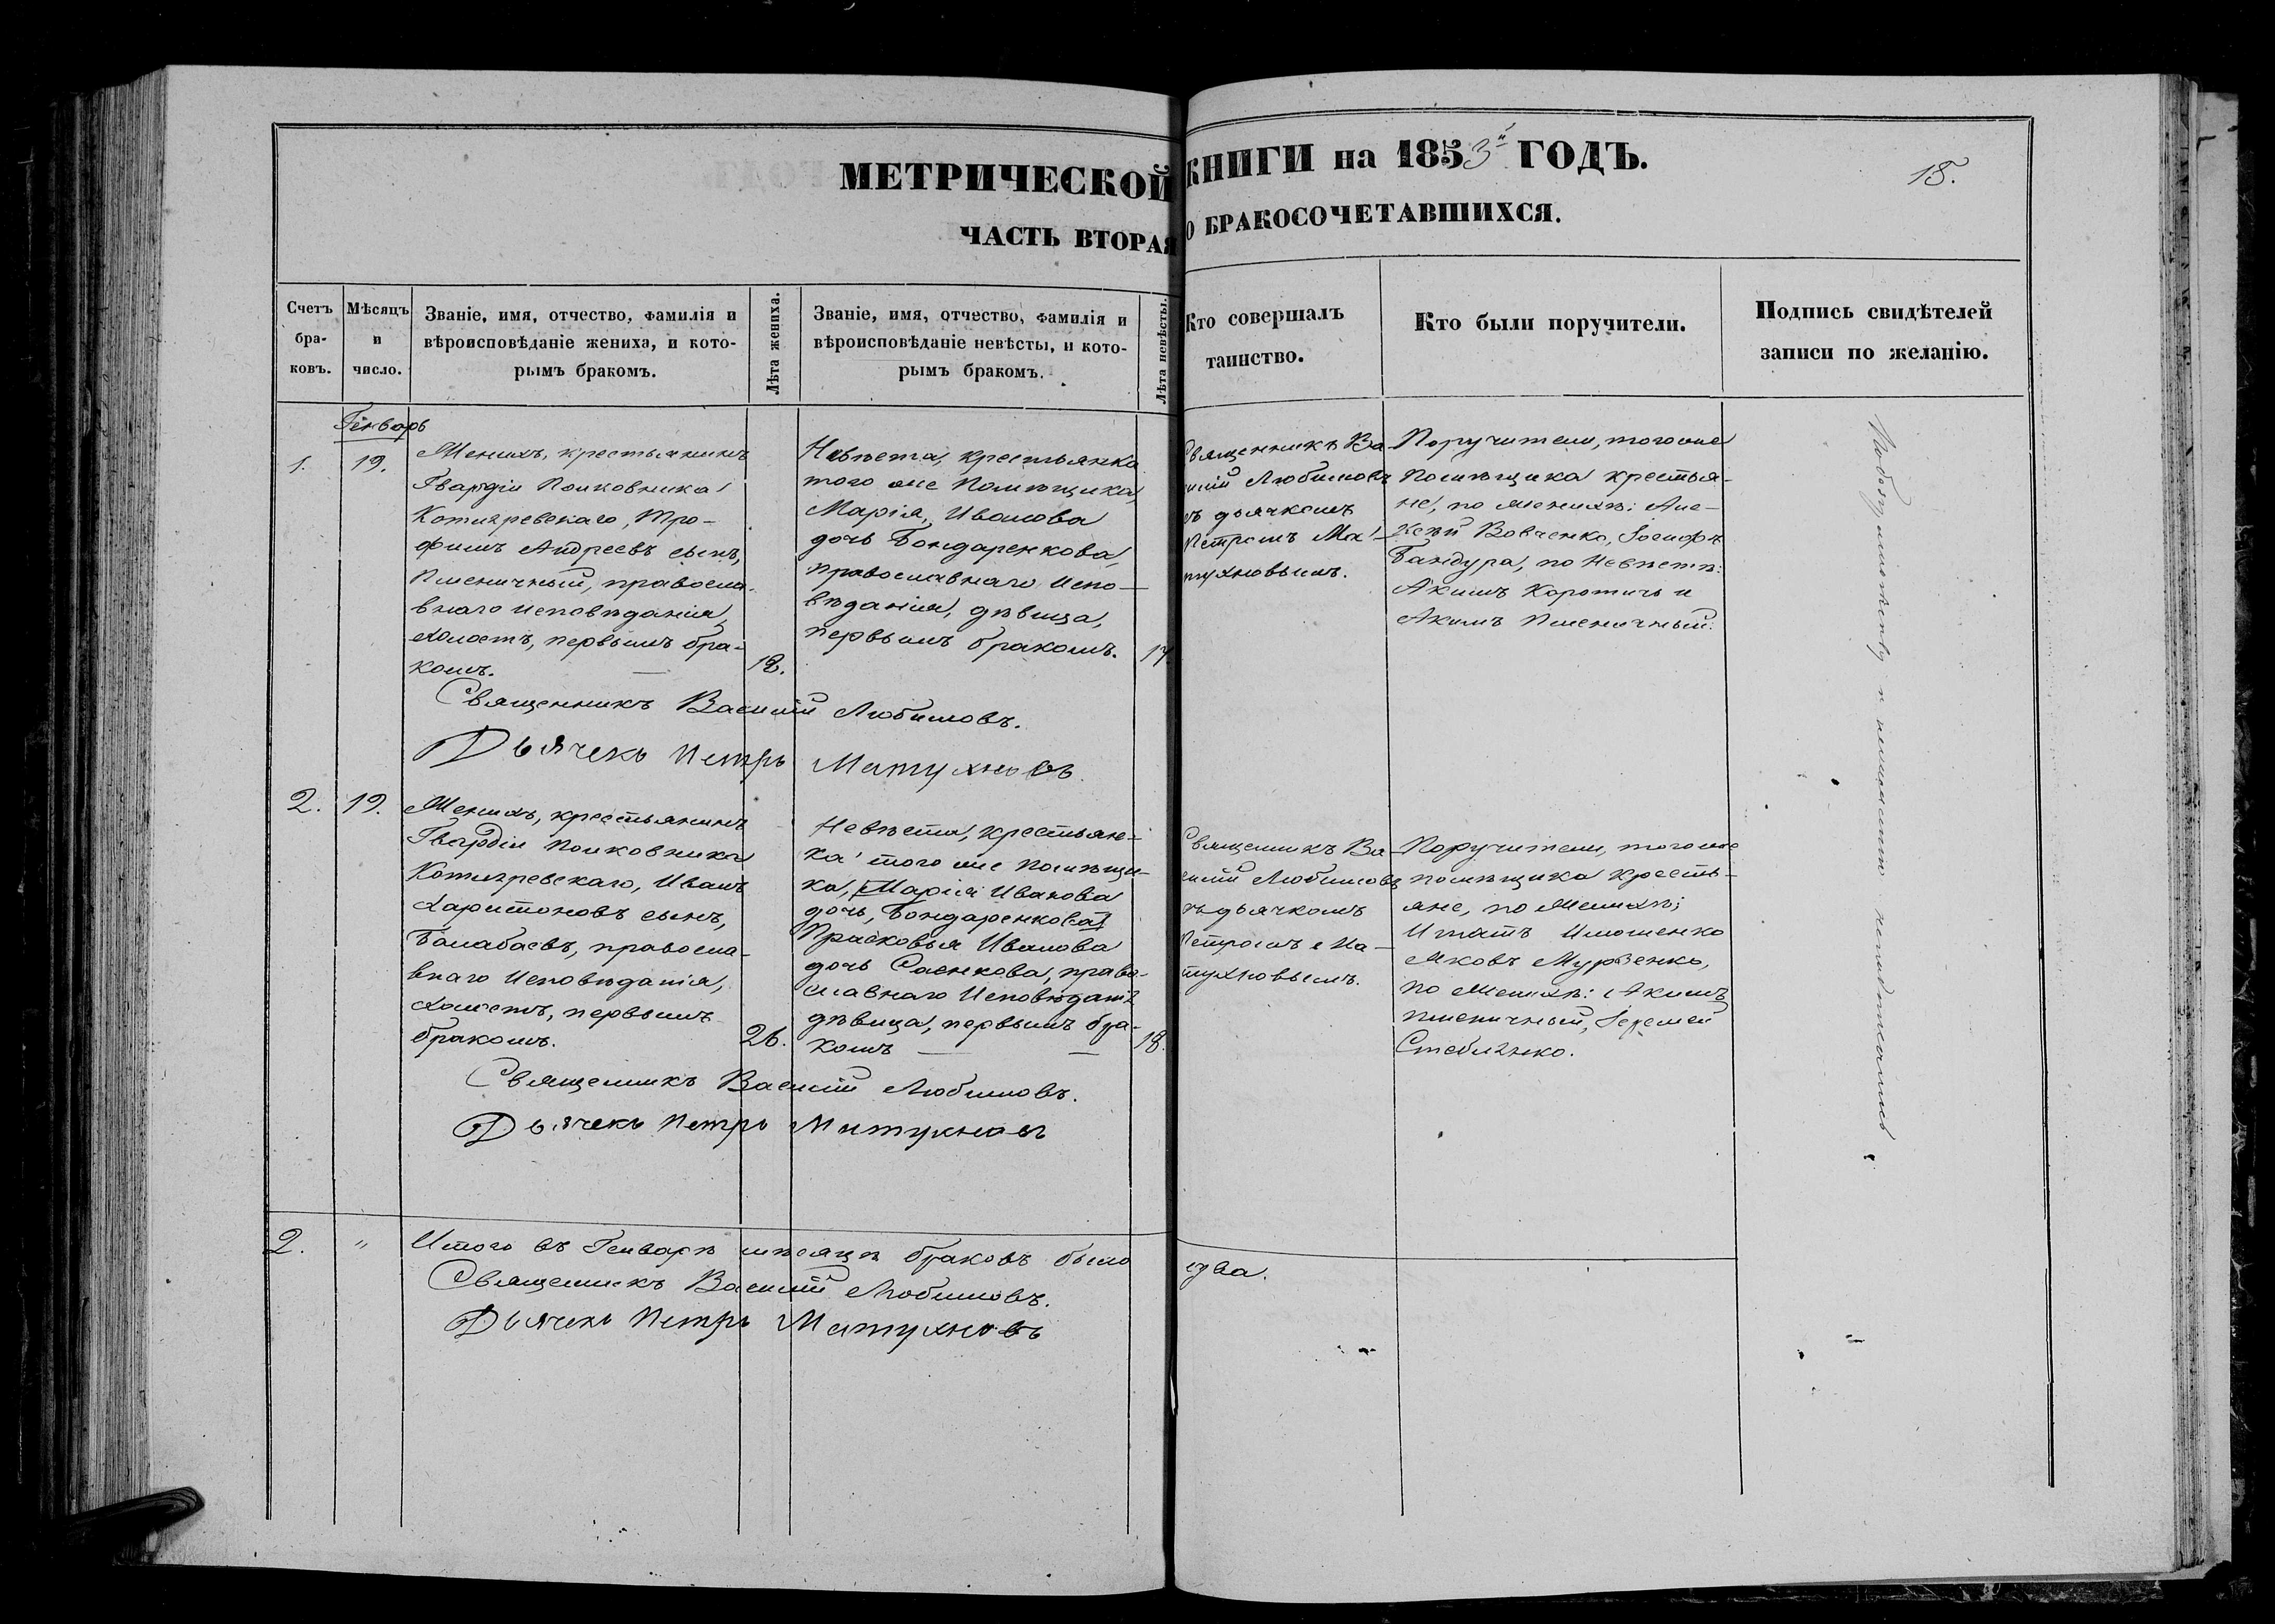 МЕТРИЧЕСКОЙ КНИГИ на 1853й ГОДЪ.
18.
ЧАСТЬ ВТОРАЯ О БРАКОСОЧЕТАВШИХСЯ.
Счетъ
бра-
ковъ.
Мѣсяцъ
и
число.
Званіе, имя, отчество, фамилія и
вѣроисповѣданіе жениха, и кото-
рымъ бракомъ.
Лѣта жениха.
Званіе, имя, отчество, фамилія и
вѣроисповѣданіе невѣсты, и кото-
рымъ бракомъ.
Лѣта невѣсты.
Кто совершалъ
таинство.
Кто были поручители.
Подпись свидѣтелей
записи по желанію.
Генварь
1.
19.
Женихъ, крестьянинъ
Гвардіи Полковника
Котляревскаго, Тро-
фимъ Андреевъ сынъ,
Пшеничный, правосла-
внаго исповѣданія,
холостъ, первымъ бра-
комъ.
18.
Невѣста, крестьянка
того же Помѣщика,
Марія, Иванова
дочь Бондаренкова,
православнаго испо-
вѣданія, дѣвица,
первымъ бракомъ.
17.
Священникъ Ва-
силій Любимовъ
съ дьячкомъ
Петромъ Ма-
тухновымъ.
Поручители, того же
Помѣщика крестья-
не, по женихѣ: Але-
ксѣй Вовченко, Іосифъ
Бандура, по Невѣстѣ:
Акимъ Коротичъ и
Акимъ Пшеничный.
Священникъ Василій Любимовъ.
Дьячекъ Петръ Матухновъ.
2.
19.
Женихъ, крестьянинъ
Гвардіи Полковника
Котляревскаго, Иванъ
Харитоновъ сынъ,
Балабаевъ, правосла-
внаго Исповѣданія,
холостъ, первымъ
бракомъ.
26.
Невѣста, крестьян-
ка того же Помѣщи-
ка, Марія Иванова
дочь, Бондаренкова
Прасковья Иванова
дочь Саенкова, право-
славнаго Исповѣданія
дѣвица, первымъ бра-
комъ
18.
Священникъ Ва-
силій Любимовъ
съ дьячкомъ
Петромъ Ма-
тухновымъ.
Поручители, того же
помѣщика кресть-
яне, по Женихѣ;
Игнатъ
Яковъ Мурзенко,
по Женихѣ: Акимъ
пшеничный, Іеремей
Стебленко.
Священникъ Василій Любимовъ.
Дьячекъ Петръ Матухновъ
2.
"
Итого въ Генварѣ мѣсяцѣ браковъ было два.
Священникъ Василій Любимовъ.
Дьячекъ Петръ Матухновъ